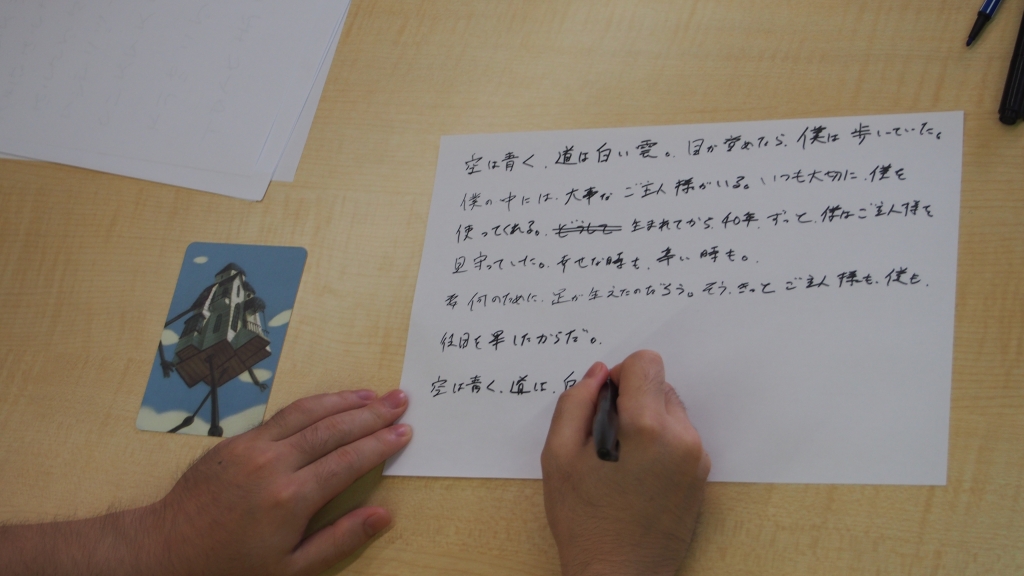 空は青く、道は白い雲。目が覚めたら、僕は歩いていた。
僕の中には、大事なご主人様がいる。いつも大切に、僕を
使ってくれる。どうして生まれてから、40年、ずっと、僕はご主人様を
見守っていた。幸せな時も、辛い時も。
何のために、足が生えたのだろう。そう、きっとご主人様も、僕も、
役目を果したからだ。
空は青く、道は、白